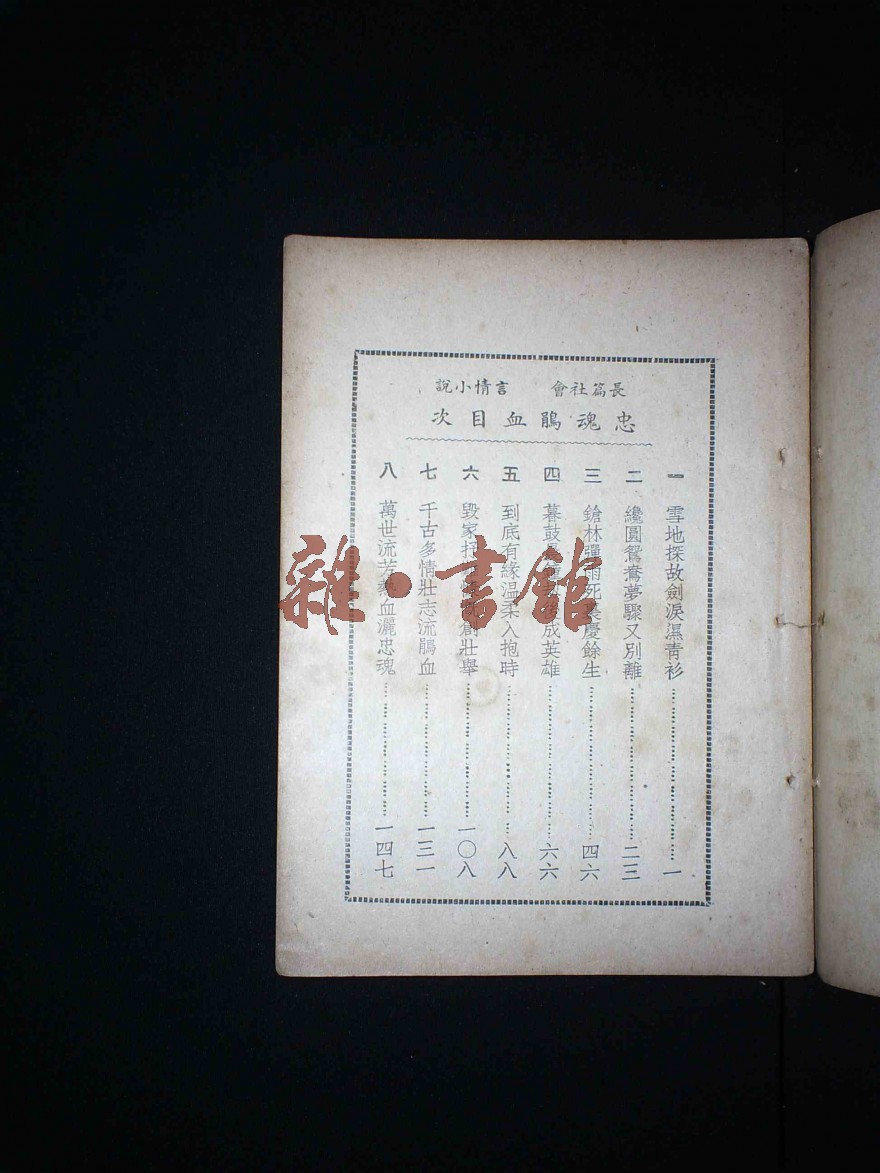 長篇社會 言情小說
忠魂鵑血目次
一 雪地探故劍淚濕青衫 一
二 纔圓鴛鴦夢驟又別離 二三
三 鎗林彈雨死裏慶餘生 四六
四 暮鼓晨鐘 成英雄 六六
五 到底有緣温柔入抱時 八八
六 毀家抒 創壯舉 一〇八
七 千古多情壯志流鵑血 一三一
八 萬世流芳熱血灑忠魂 一四七
雜·書館